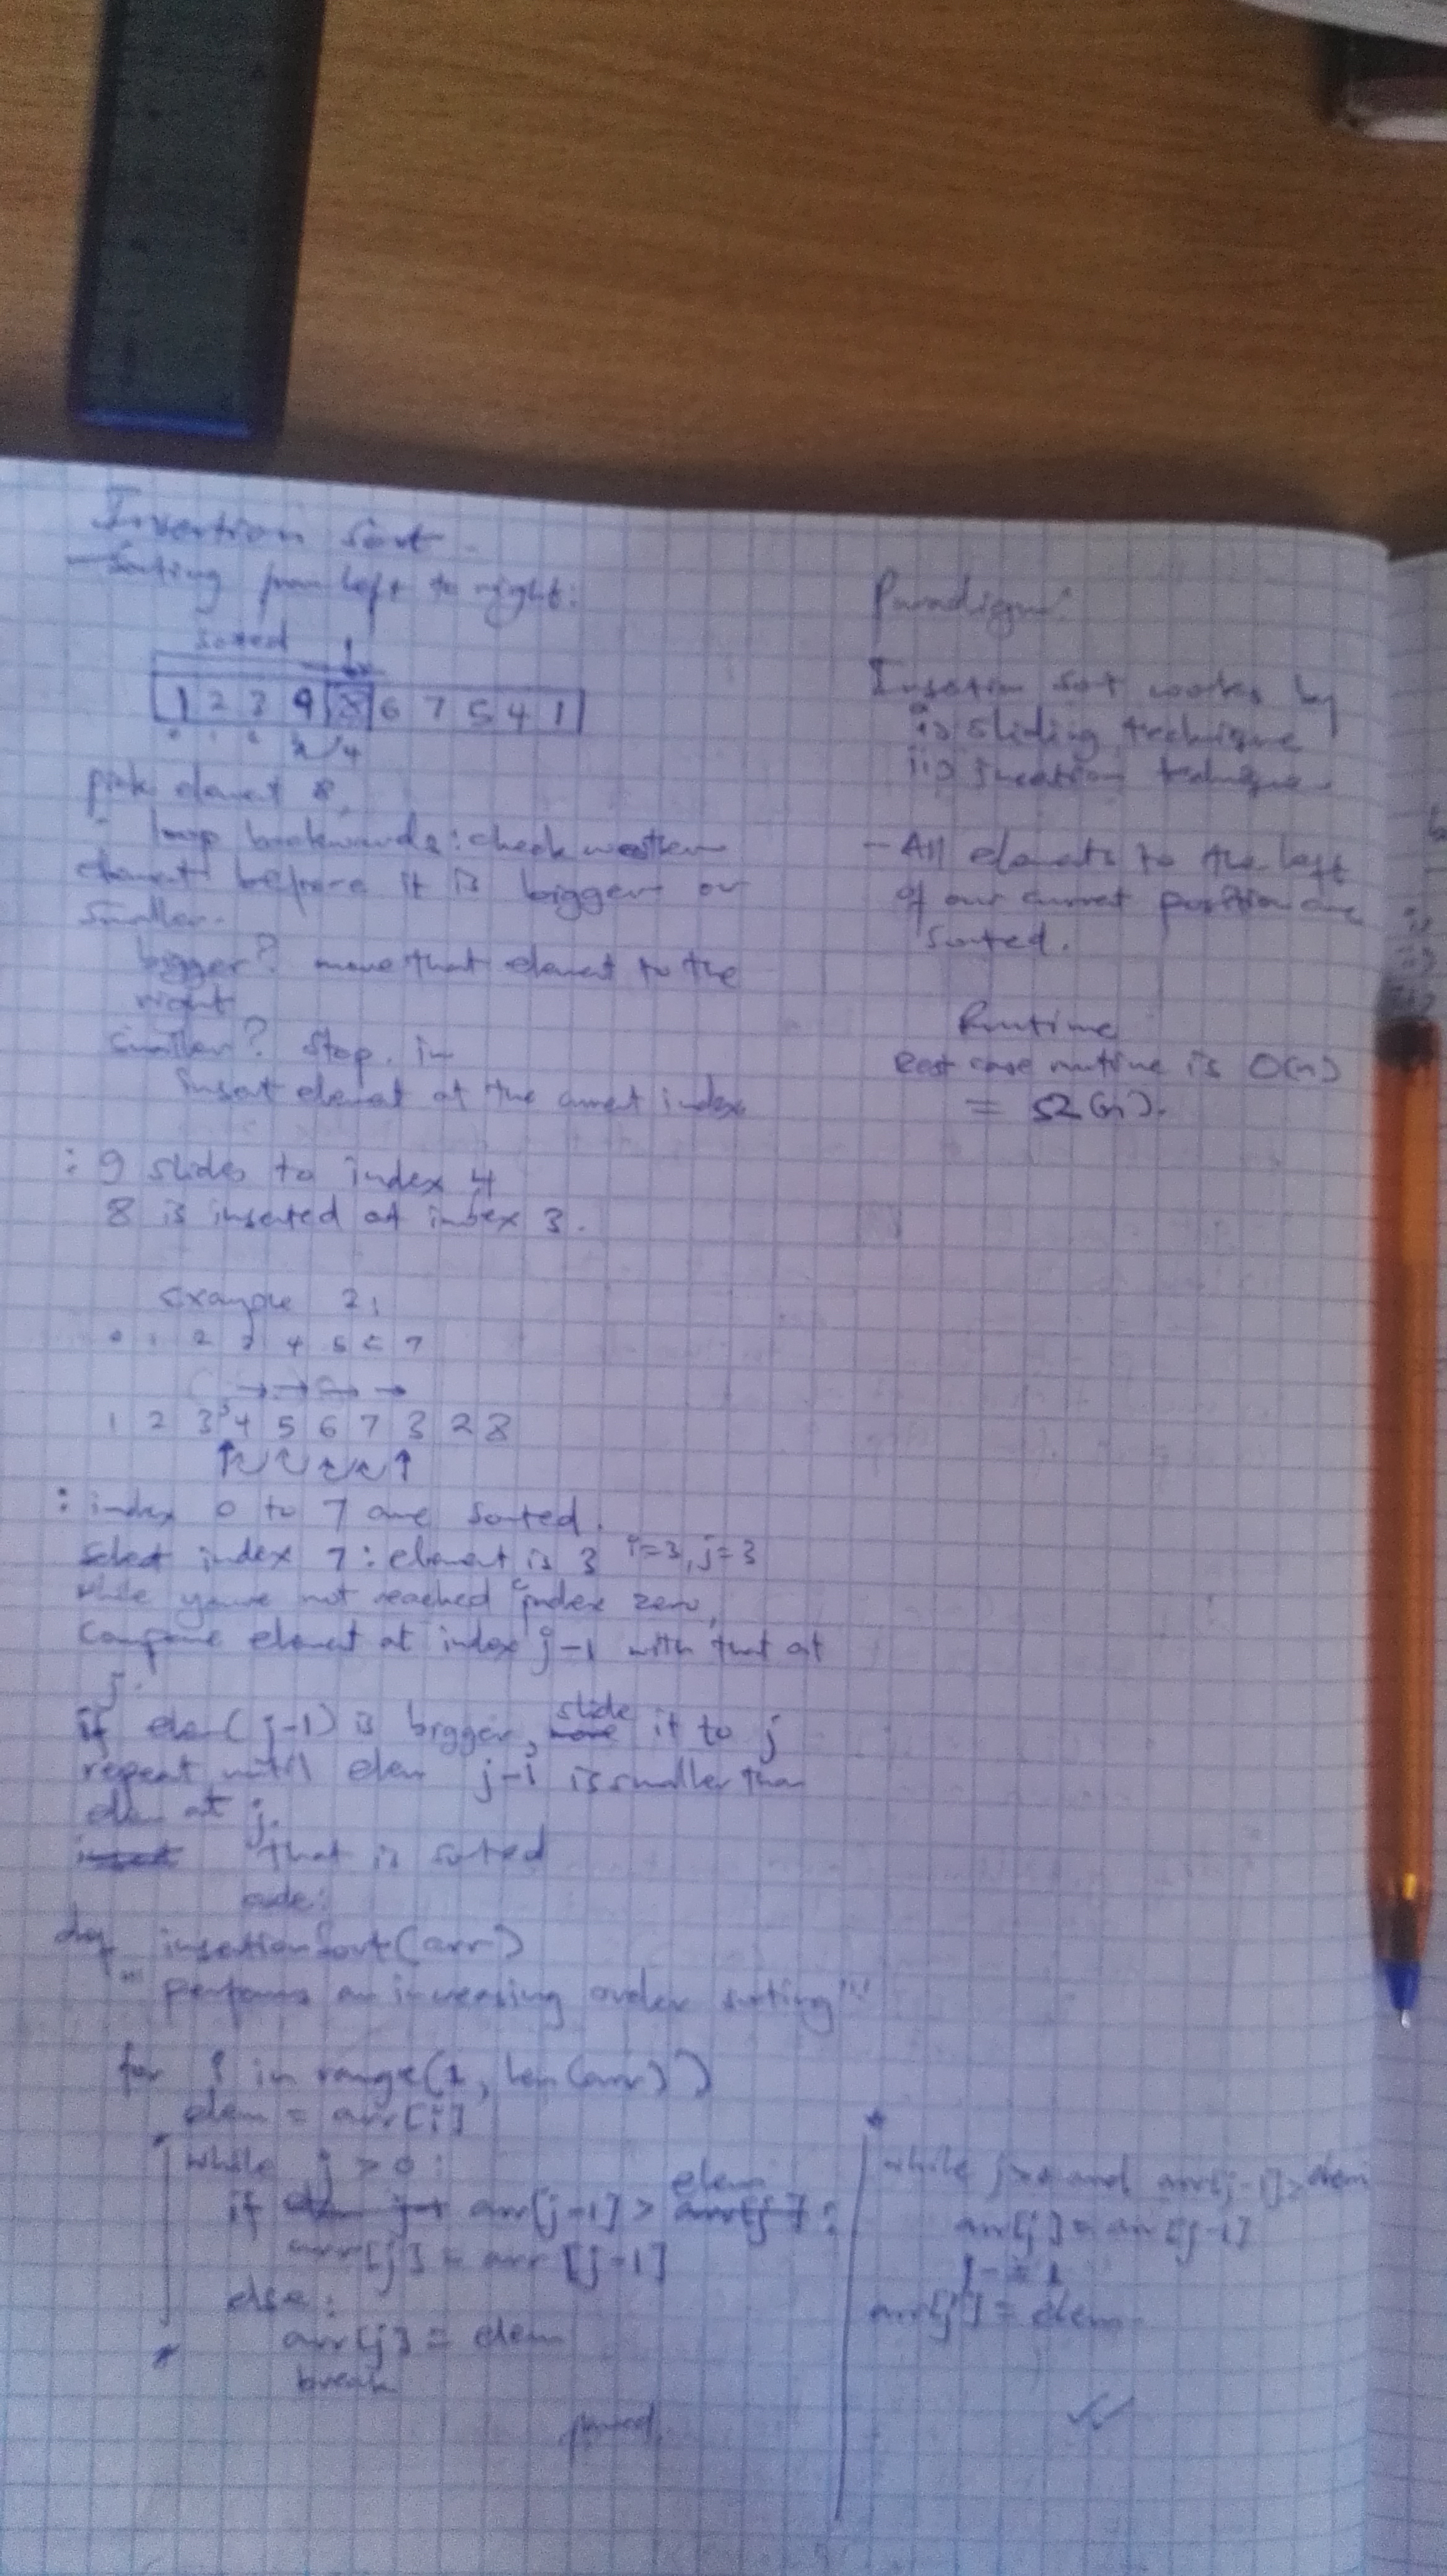 Insertion Sort.
- Sorting from left to right:
sorted
1 2 3 9 8 6 7 5 4 1
0 1 2 3 4
pick element 8,
loop backwards: check whether
element before it is bigger or
smaller.
bigger? move that element to the
right
smaller? Stop. in
insert element at the current index
: 9 slides to index 4
8 is inserted at index 3.
Example 2:
0 1 2 3 4 5 6 7
1 2 3 3 4 5 6 7 3 2 8
: index 0 to 7 are sorted.
select index 7: element is 3 i=3, j=3
while you've not reached index zero,
Compare element at index j-1 with that at
j.
if elem(j-1) is bigger, slide it to j
repeat until elem j-1 is smaller than
elem at j.
that is sorted
code:
def insertionSort(arr)
""" performs an increasing order sorting """
for i in range(1, len(arr))
elem = arr[i]
while j > 0:
if arr[j-1] > elem:
arr[j] = arr[j-1]
else:
arr[j] = elem
break
Paradigm:
Insertion sort works by
i) sliding technique
ii) insertion technique
- All elements to the left
of our current position are
sorted.
Runtime
Best case runtime is O(n)
= Ω(n).
while j>0 and arr[j-1]>elem
arr[j] = arr[j-1]
j -= 1
arr[j] = elem